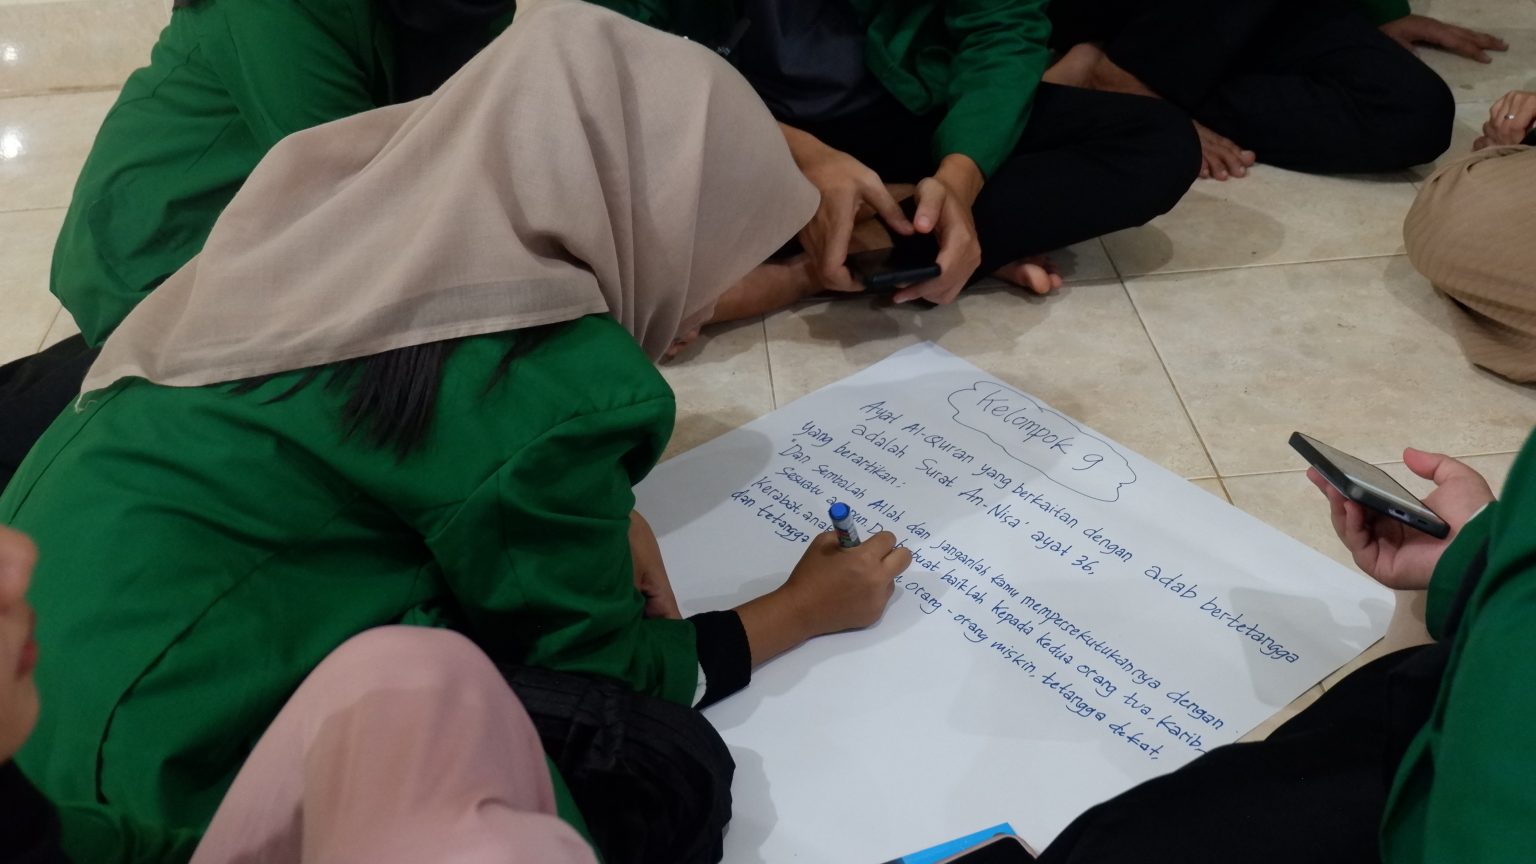 Kelompok 9
Ayat Al-Qur'an yang berkaitan dengan adab bertetangga
adalah Surat An-Nisa' ayat 36,
yang berartikan:
"Dan Sembalah Allah dan janganlah kamu mempersekutukannya dengan
sesuatu buat baiklah kepada kedua orang tua, Karib-
Kerabat, anak orang-orang miskin, tetangga dekat,
dan tetangga